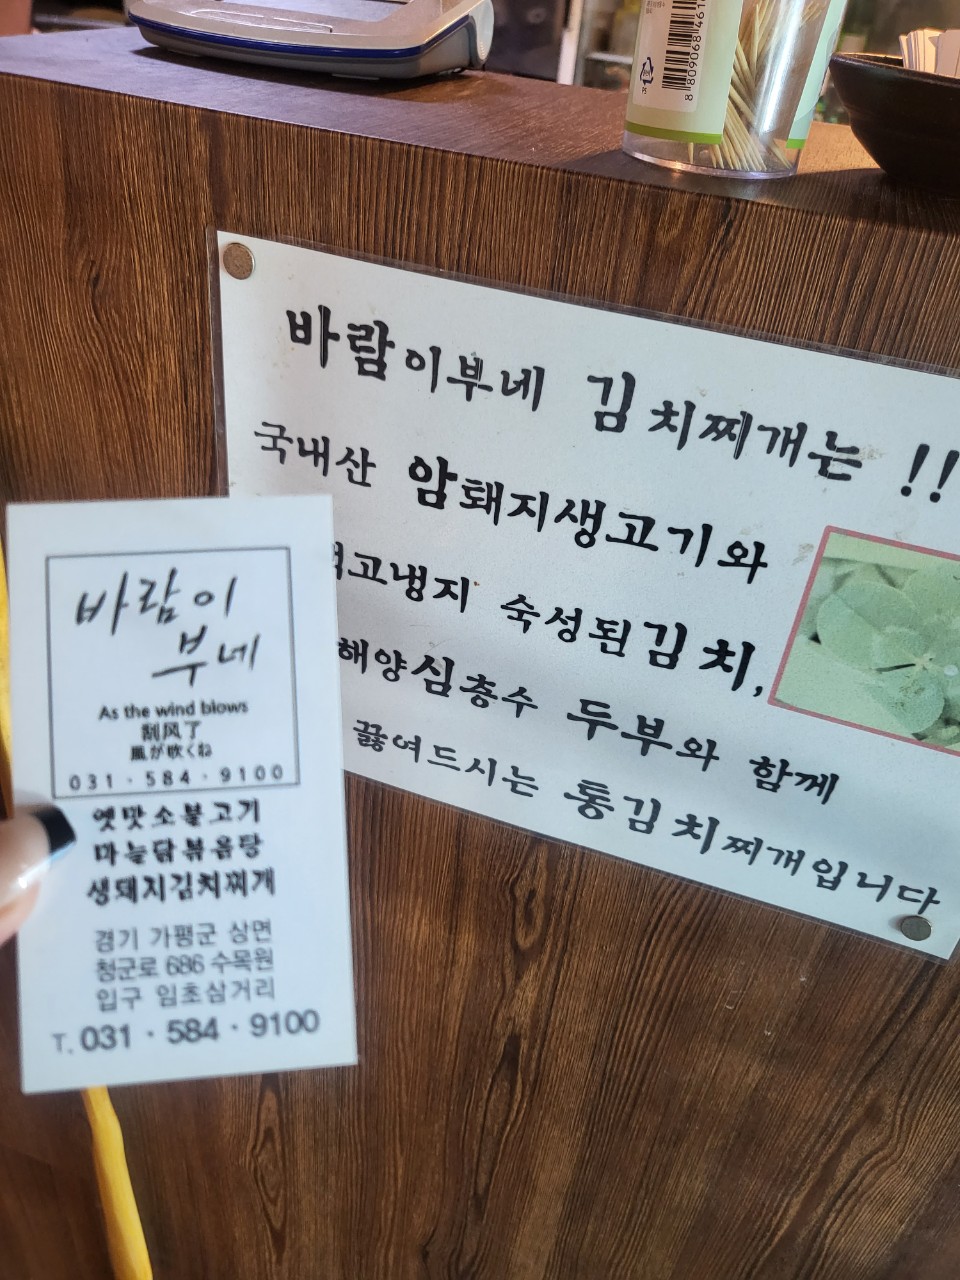 8 809068 461
바람이부네 김치찌개는 !!
국내산 암퇘지생고기와
고냉지 숙성된김치,
해양심층수 두부와 함께
끓여드시는 통김치찌개입니다
바람이
부네
As the wind blows
刮风了
風が吹くね
031 · 584 · 9100
옛맛소불고기
마늘닭볶음탕
생돼지김치찌개
경기 가평군 상면
청군로 686 수목원
입구 임초삼거리
T. 031 · 584 · 9100